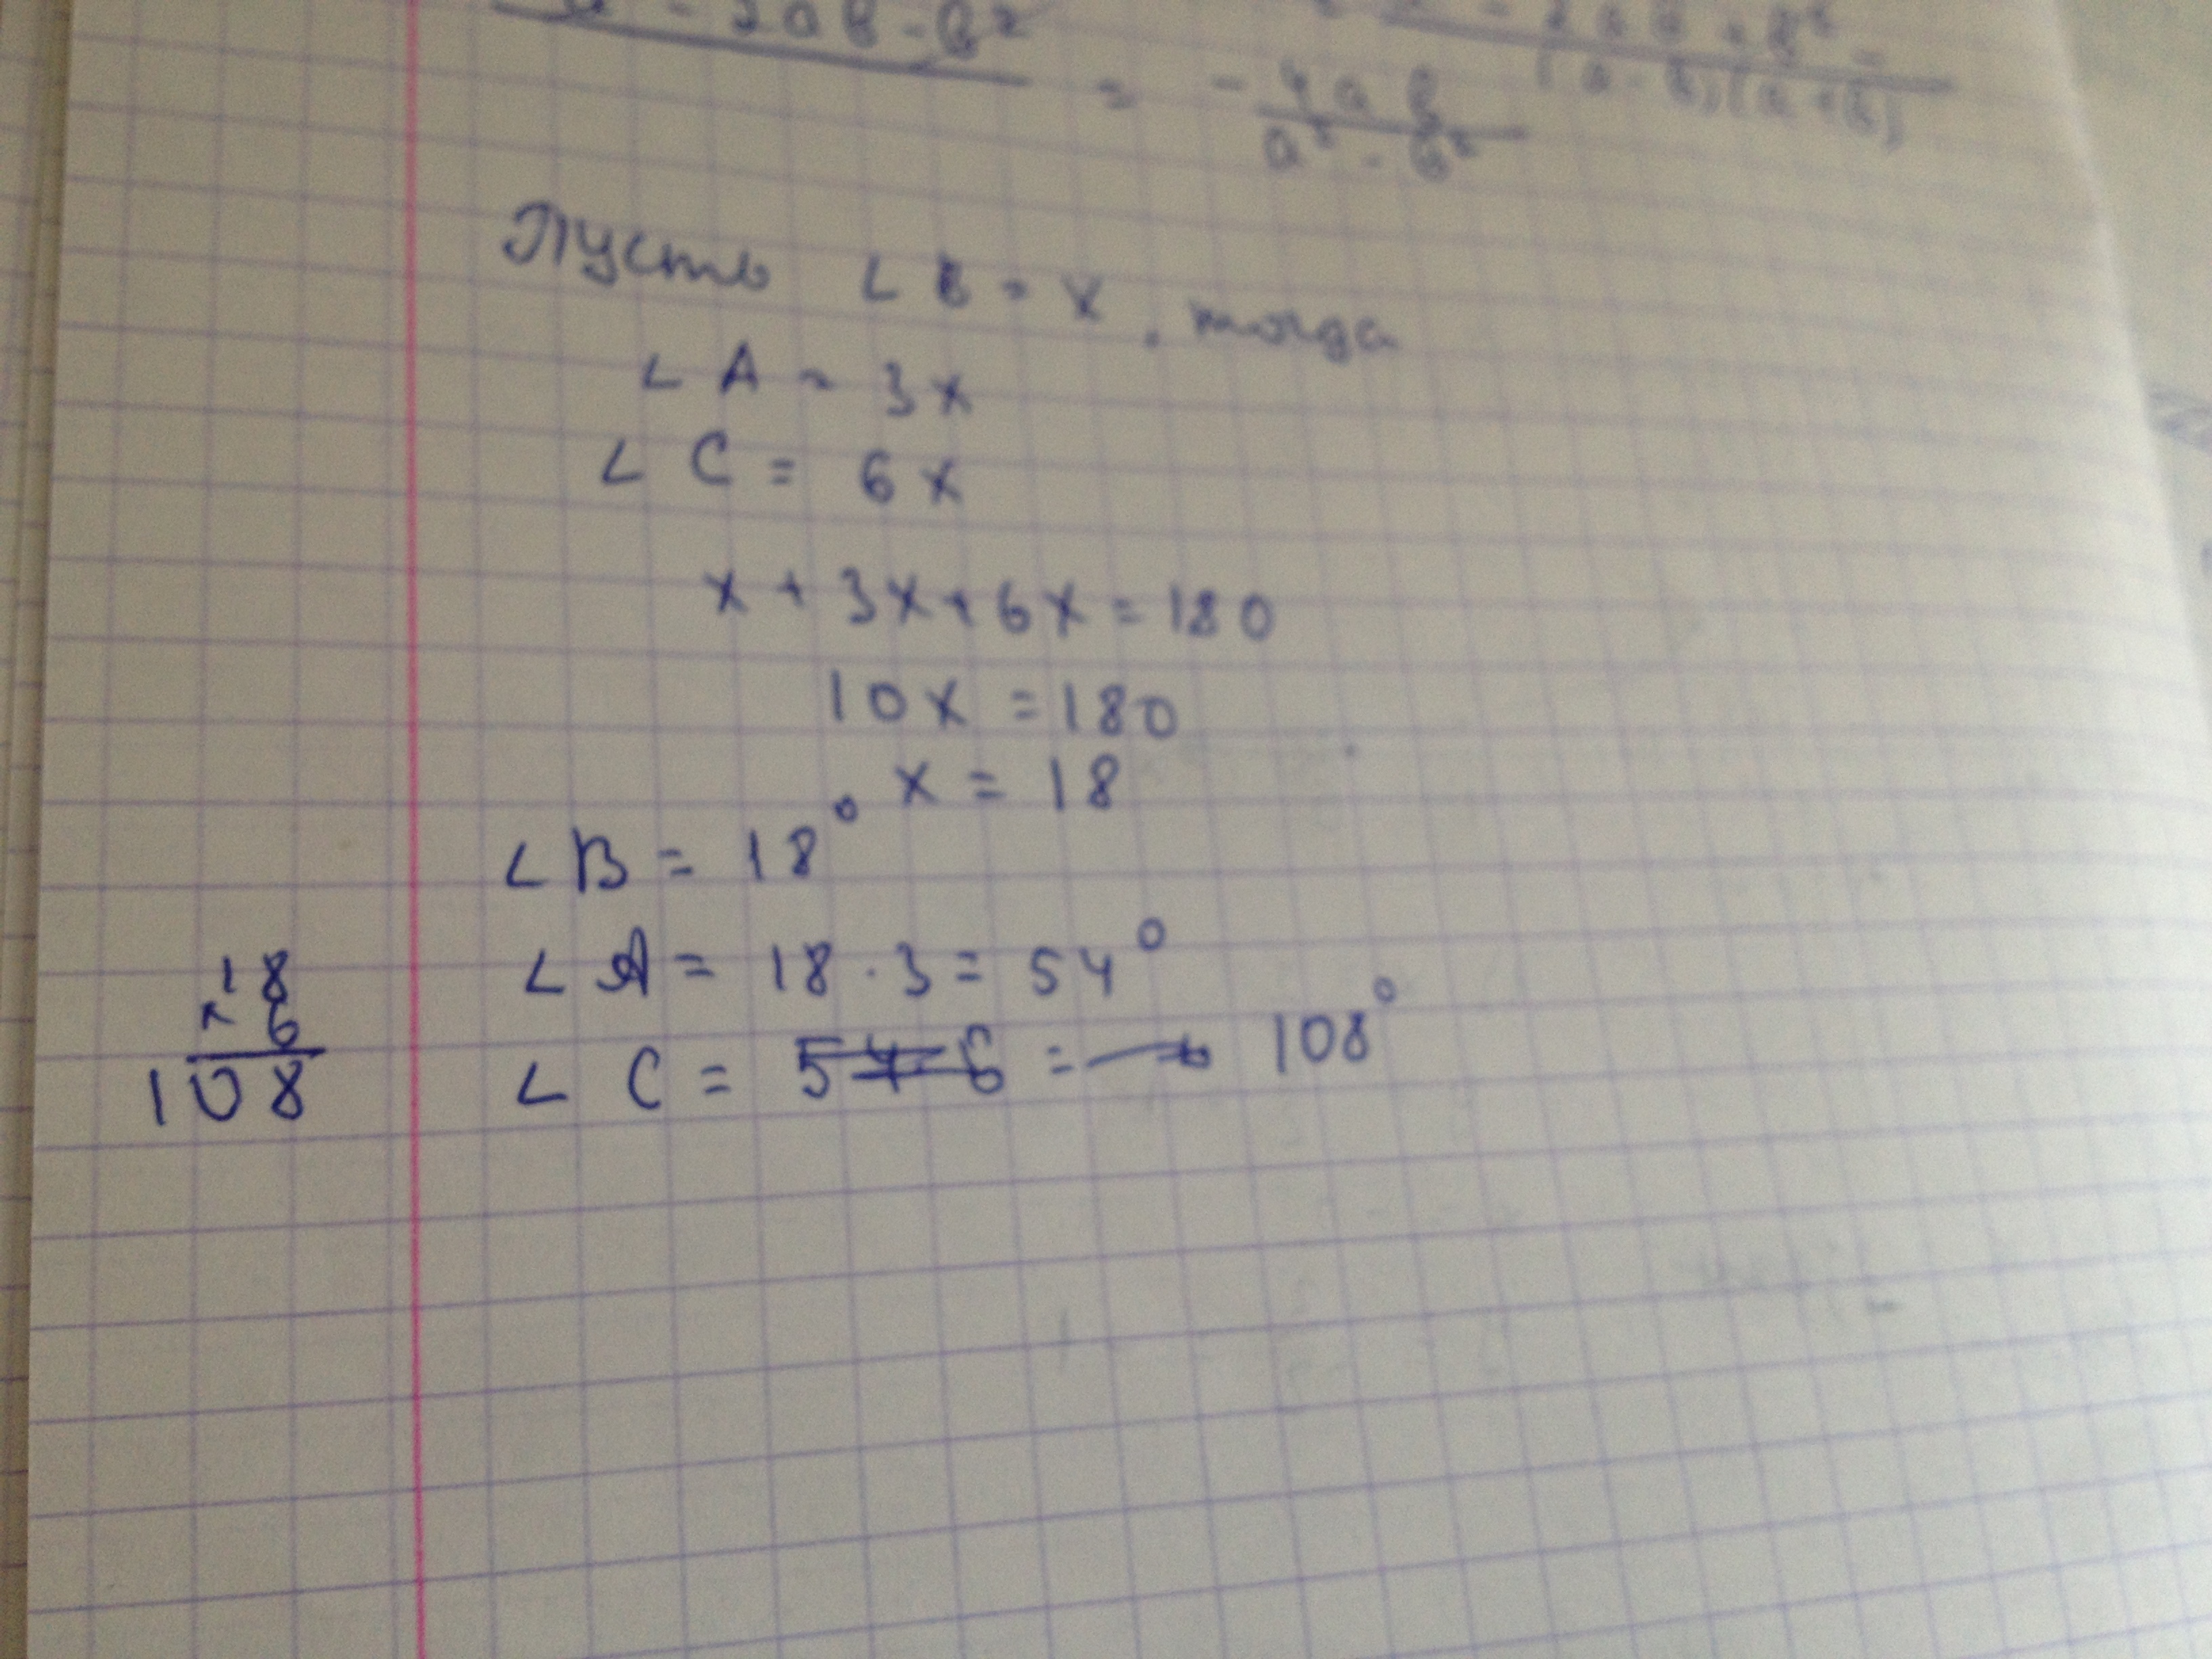 - 2ab - b²
= - 4ab / a² - b²
- 2ab + b² =
(a - b)(a + b)
Пусть ∠B = x, тогда
∠A = 3x
∠C = 6x
x + 3x + 6x = 180
10x = 180
x = 18
∠B = 18°
∠A = 18 · 3 = 54°
18
× 6
108
∠C = 54 · 6 = 108°